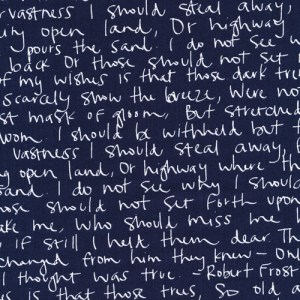 vastness I should steal away,
open land, Or highway
pours the sand. I do not see w
back Or those should not set
of my wishes is that those dark tre
scarcely show the breeze, Were no
st mask of gloom, But stretched
I should be withheld but
vastness I should steal away,
open land, Or highway where th
sand. I do not see why I should
hose should not set forth upon
ake me, who should miss me
if still I held them dear. Th
changed from him they knew - On
I thought was true. -Robert Frost
s that those trees, So old a